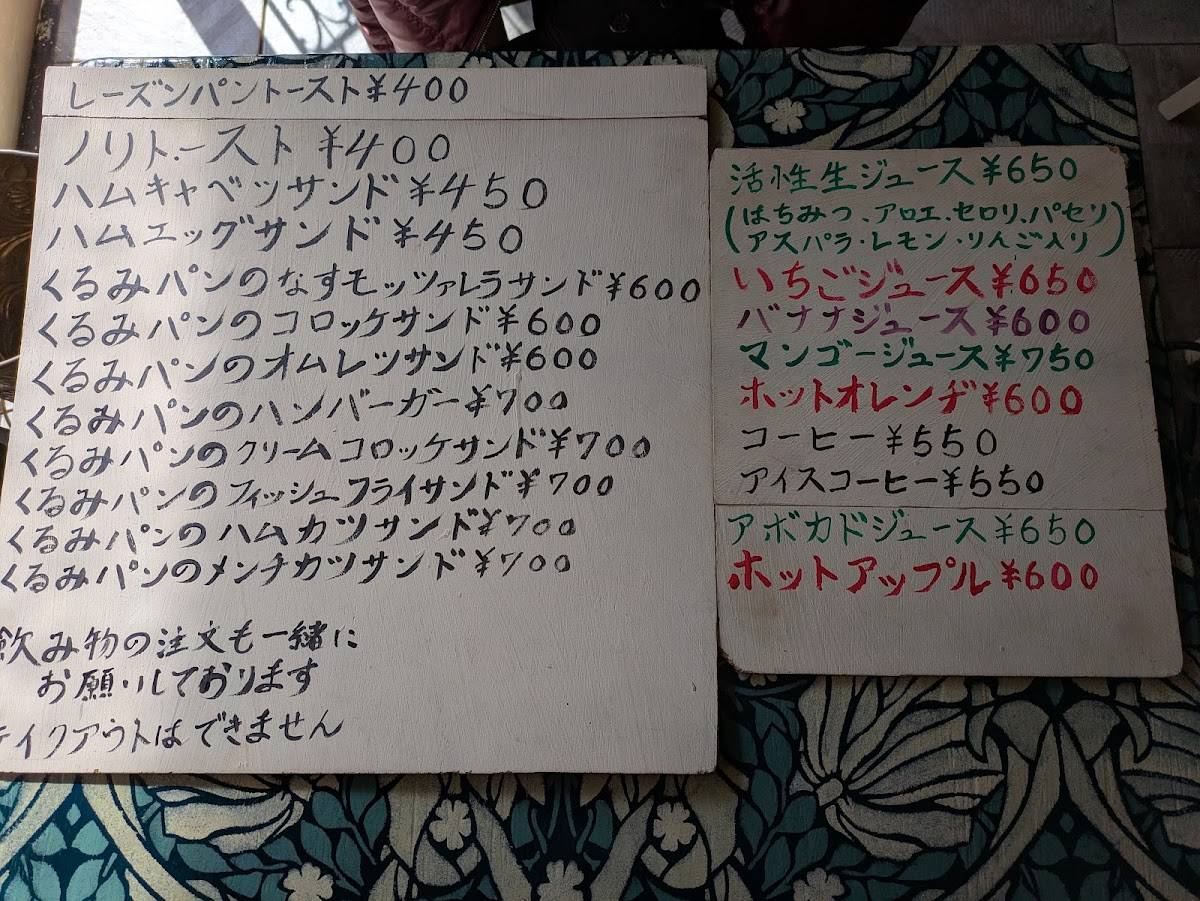 レーズンパントースト¥400
ノリトースト ¥400
ハムキャベツサンド¥450
ハムエッグサンド¥450
くるみパンのなすモッツァレラサンド¥600
くるみパンのコロッケサンド¥600
くるみパンのオムレツサンド¥600
くるみパンのハンバーガー¥700
くるみパンのクリームコロッケサンド¥700
くるみパンのフィッシュフライサンド¥700
くるみパンのハムカツサンド¥700
くるみパンのメンチカツサンド¥700
飲み物の注文も一緒に
お願いしております
テイクアウトはできません
活性生ジュース¥650
(はちみつ、アロエ、セロリ、パセリ
アスパラ・レモン・りんご入り)
いちごジュース¥650
バナナジュース¥600
マンゴージュース¥750
ホットオレンヂ¥600
コーヒー¥550
アイスコーヒー¥550
アボカドジュース¥650
ホットアップル¥600